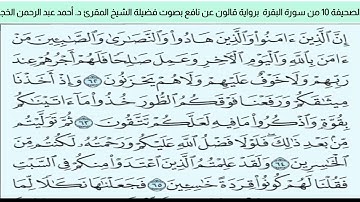 صحيفة 10 من سورة البقرة برواية قالون عن نافع بصوت فضيلة الشيخ المقرئ د. أحمد عبد الرحمن
إِنَّ ٱلَّذِينَ ءَامَنُواْ وَٱلَّذِينَ هَادُواْ وَٱلنَّصَٰرَىٰ وَٱلصَّٰبِينَ مَنَ
ءَامَنَ بِٱللَّهِ وَٱلْيَوْمِ ٱلْأَخِرِ وَعَمِلَ صَٰلِحًا فَلَهُمْ أَجْرُهُمْ
عِندَ رَبِّهِمْ وَلَا خَوْفٌ عَلَيْهِمْ وَلَا هُمْ يَحْزَنُونَ ٦٢ وَإِذْ أَخَذْنَا
مِيثَٰقَكُمْ وَرَفَعْنَا فَوْقَكُمُ ٱلطُّورَ خُذُواْ مَا ءَاتَيْنَٰكُم
بِقُوَّةٍ وَٱذْكُرُواْ مَا فِيهِ لَعَلَّكُمْ تَتَّقُونَ ٦٣ ثُمَّ تَوَلَّيْتُم
مِّنۢ بَعْدِ ذَٰلِكَ فَلَوْلَا فَضْلُ ٱللَّهِ عَلَيْكُمْ وَرَحْمَتُهُۥ لَكُنتُم مِّنَ
ٱلْخَٰسِرِينَ ٦٤ وَلَقَدْ عَلِمْتُمُ ٱلَّذِينَ ٱعْتَدَوْاْ مِنكُمْ فِى ٱلسَّبْتِ
فَقُلْنَا لَهُمْ كُونُواْ قِرَدَةً خَٰسِـِٔينَ ٦٥ فَجَعَلْنَٰهَا نَكَٰلًا لِّمَا